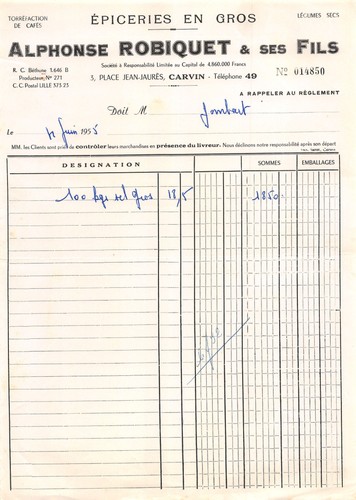 TORRÉFACTION DE CAFÉS
ÉPICERIES EN GROS
LÉGUMES SECS
ALPHONSE ROBIQUET & SES FILS
Société à Responsabilité Limitée au Capital de 4.860.000 Francs
R. C. Béthune 1.646 B
Producteur N° 271
C. C. Postal LILLE 575 23
3, PLACE JEAN-JAURÈS, CARVIN - Téléphone 49
N° 014850
A RAPPELER AU RÈGLEMENT
Doit M Jombart
Le Juin 1955
MM. les Clients sont priés de contrôler leurs marchandises en présence du livreur. Nous déclinons notre responsabilité après son départ
DESIGNATION SOMMES EMBALLAGES
100 kgs sel gros 18,5 1850